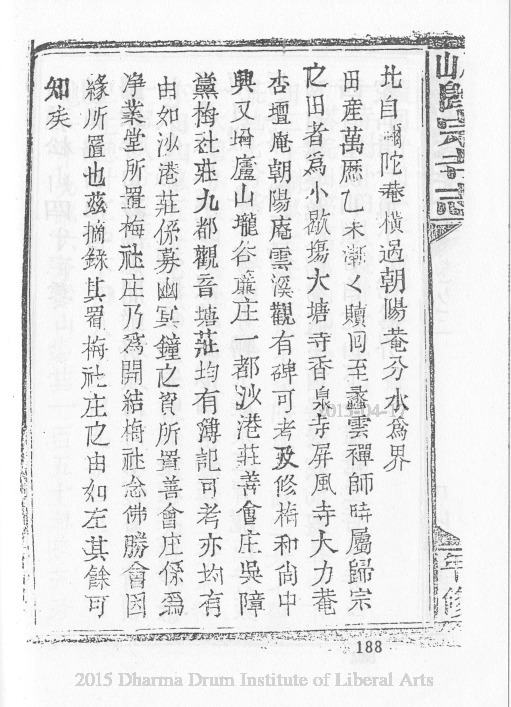 北自彌陀菴橫過朝陽菴分水為界
田產萬曆乙未漸〻贖回至蠡雲禪師時屬歸宗
之田者為小歇塲大塘寺香泉寺屏風寺大力菴
杏壇庵朝陽庵雲溪觀有碑可考及修梅和尚中
興又增廬山壠谷簾庄一都沙港莊善會庄吳障
黨梅社莊九都觀音塘莊均有簿記可考亦均有
由如沙港莊係募幽冥鐘之資所置善會庄係為
净業堂所置梅社庄乃為開結梅社念佛勝會因
緣所置也茲摘錄其置梅社庄之由如左其餘可
知矣
年修
188
2015-04-17
2015 Dharma Drum Institute of Liberal Arts